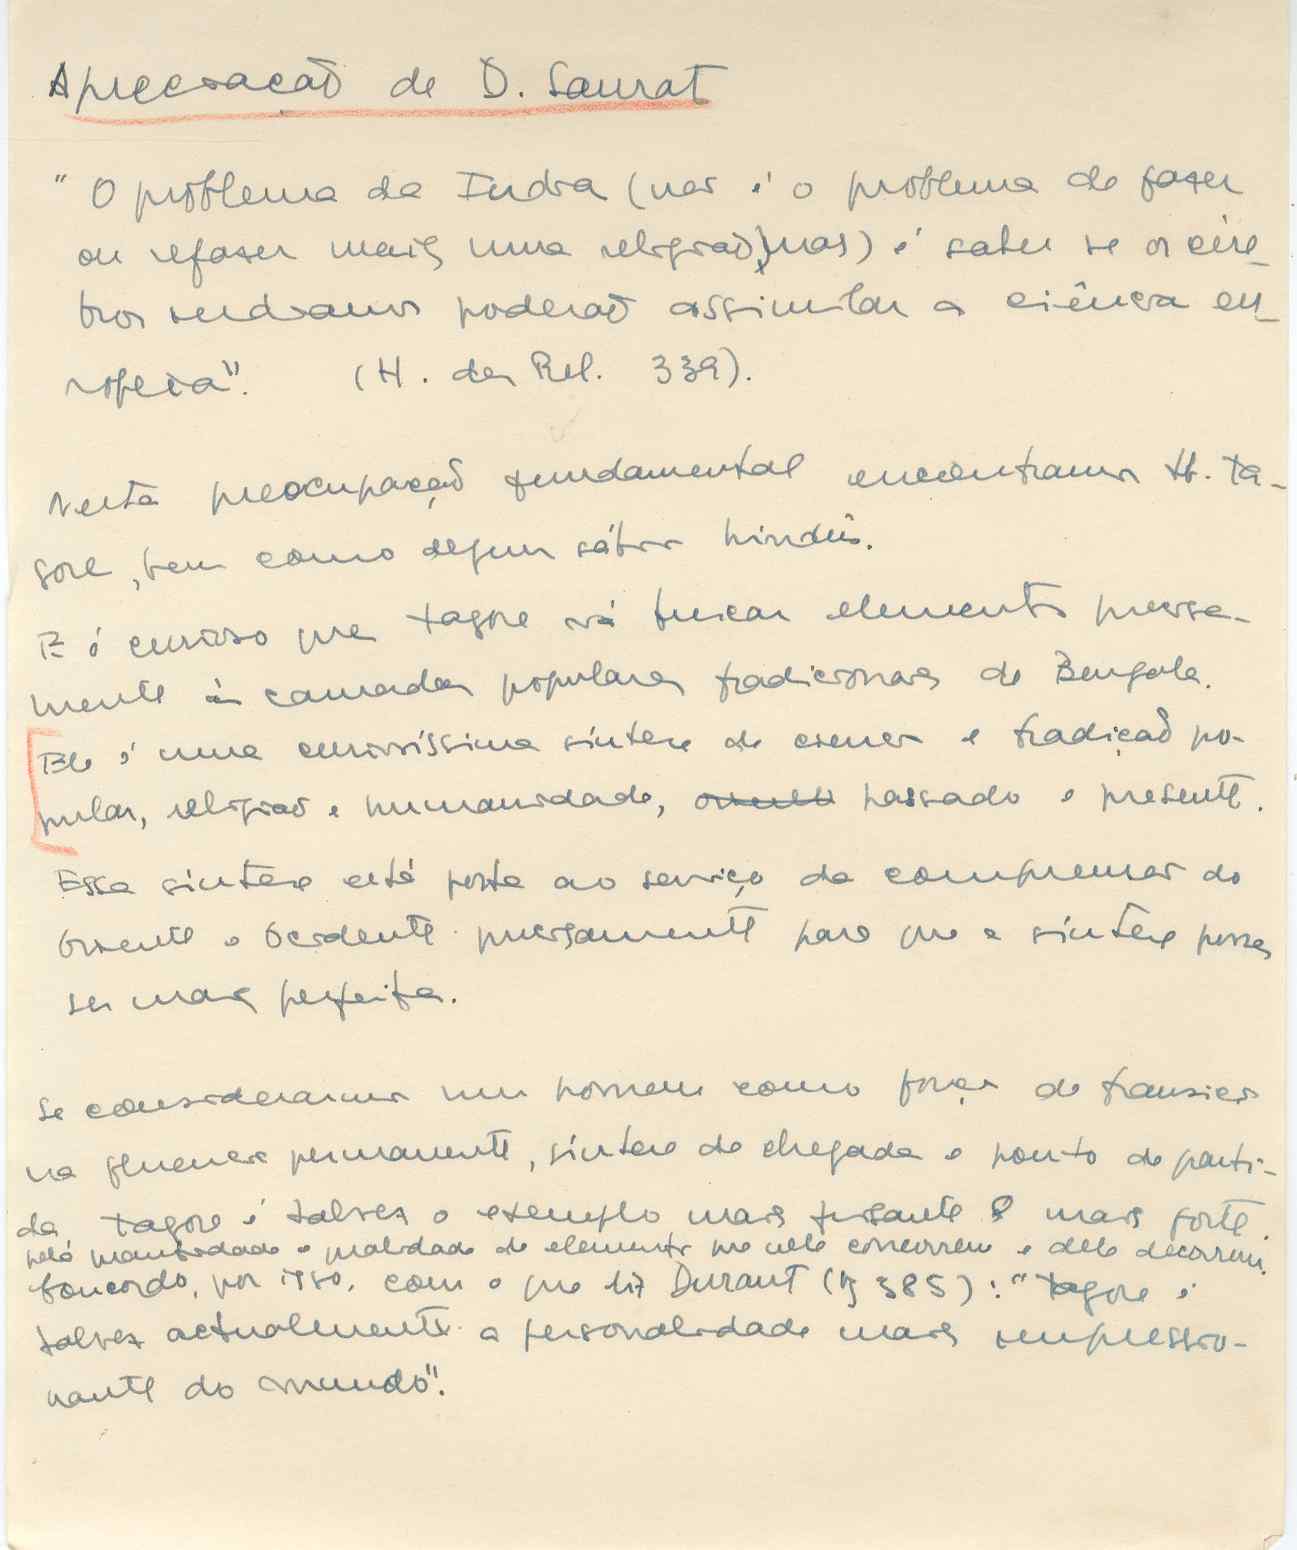 Apreciação de D. Saurat
"O problema da Índia (não é o problema de fazer
ou refazer mais uma religião, mas) é saber se os cére-
bros indianos poderão assimilar a ciência eu-
ropeia". (H. das Rel. 339).
Nesta preocupação fundamental encontramos Ta-
gore, bem como alguns sábios hindús.
E é curioso que Tagore vá buscar elementos precisa-
mente às camadas populares tradicionais de Bengala.
Ele é uma curiosíssima síntese de ciência e tradição po-
pular, religião e humanidade, passado e presente.
Essa síntese está posta ao serviço da compreensão do
Oriente e Ocidente precisamente para que a síntese possa
ser mais perfeita.
Se considerarmos um homem como força de transição
na fluência permanente, síntese de chegada e ponto de parti-
da, Tagore é talvez o exemplo mais frisante e mais forte,
pela quantidade e qualidade de elementos que nele concorrem e dele decorrem.
Concordo, por isso, com o que diz Durant (p 385): "Tagore é
talvez actualmente a personalidade mais impressio-
nante do mundo".